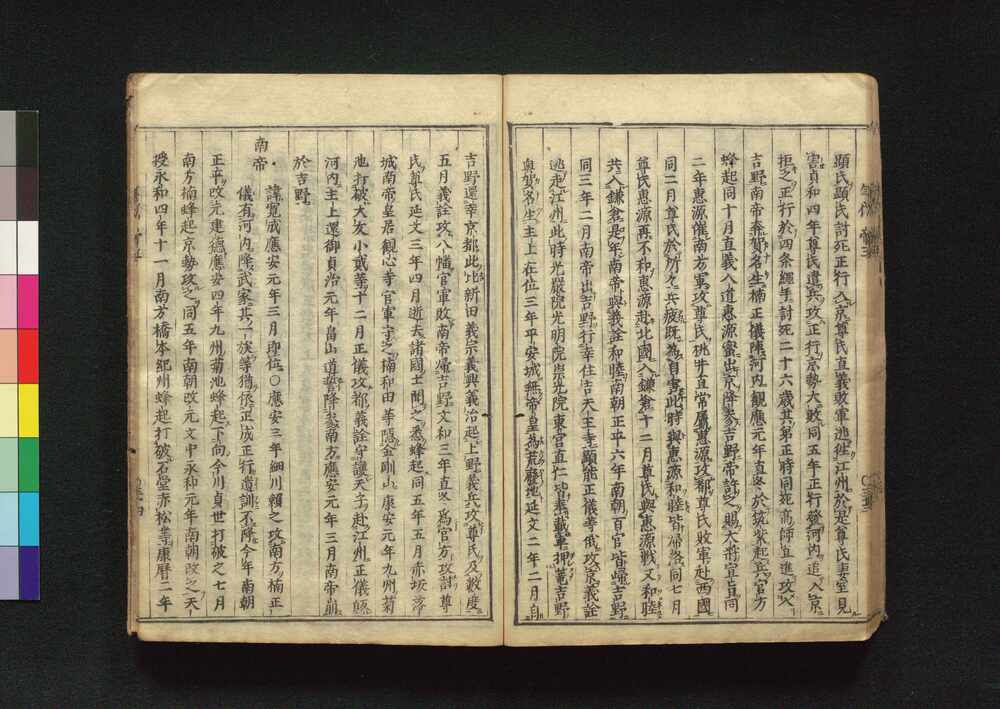 顕氏顕氏討死正行入京尊氏直義敗軍逃往江州於是尊氏妻室見
害貞和四年尊氏遣兵攻正行京勢大敗同五年正行發河内追入京
拒之正行於四条縄手討死二十六歳其弟正時同死高師直進攻入
吉野南帝奔賀名生楠正儀陣河内観應元年直冬於筑紫起兵官方
蜂起同十月直義入道惠源蜜出京降参吉野帝許之賜大将宣旨同
二年惠源催南方軍攻尊氏桃井直常属惠源攻都尊氏敗軍赴西國
同二月尊氏於所々兵疲既為自害此時與惠源和睦皆帰洛同七月
尊氏惠源再不和惠源赴北國入鎌倉十二月尊氏與惠源戦又和睦
共入鎌倉是年南帝與義詮和睦南朝正平六年南朝百官皆帰吉野
同三年二月南帝出吉野行幸住吉天王寺顕能正儀等俄攻京義詮
逃走江州此時光嚴院光明院崇光院東宮直仁皆奉載車押篭吉野
奥賀名生主上在位三年平安城無帝皇為荒廢地延文二年二月自
吉野還幸京都此比新田義宗義興義治起上野義兵攻尊氏及數度
五月義詮攻八幡官軍敗南帝帰吉野文和三年直冬為官方攻討尊
氏尊氏延文三年四月逝去諸國士聞之悉蜂起同五年五月赤坂落
城南帝皇居観心寺官軍守之楠和田等隠金剛山康安元年九州菊
池打破大友小貳等十二月正儀攻都義詮守護天子赴江州正儀帰
河内主上還御貞治元年畠山道誓降参南方應安元年三月南帝崩
於吉野
南帝
諱寛成應安元年三月即位○應安三年細川頼之攻南方楠正
儀有河内降武家其一族等猶依正成正行遺訓不降今年南朝
正平改元建徳應安四年九州菊池蜂起下向今川貞世打破之七月
南方楠蜂起京勢攻之同五年南朝改元文中永和元年南朝改之天
授永和四年十一月南方橋本紀州蜂起打破石堂赤松等康暦二年